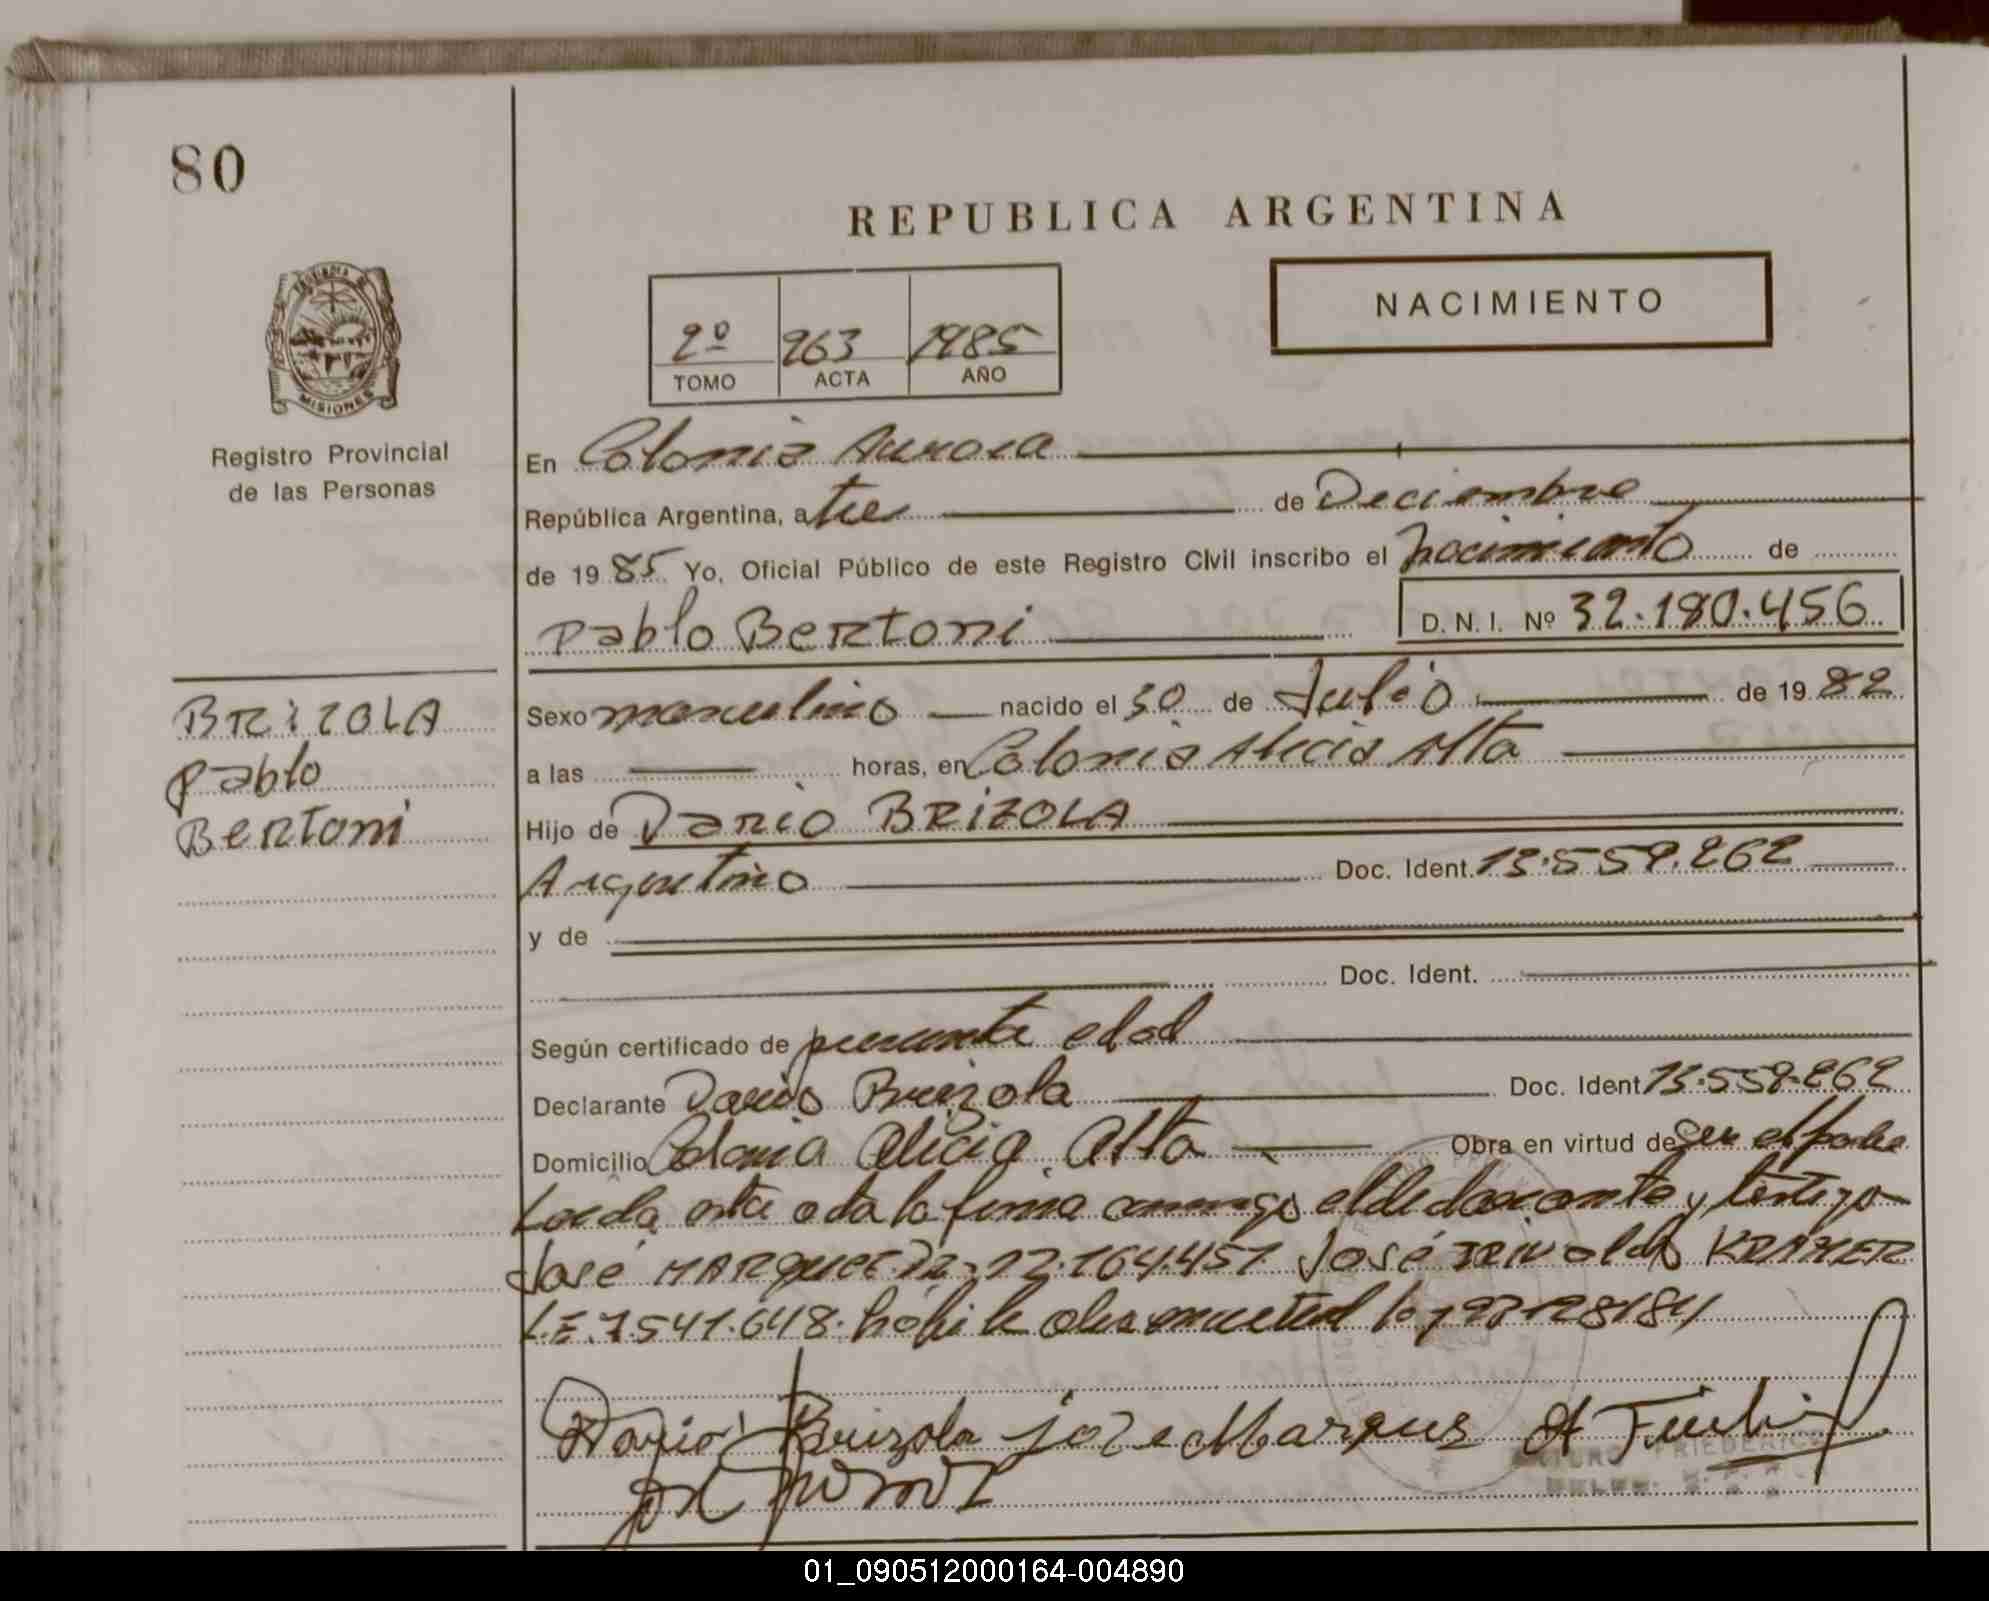 80
REPUBLICA ARGENTINA
NACIMIENTO
2º 263 1985
TOMO ACTA AÑO
MISIONES
Registro Provincial
de las Personas
En Colonia Aurora
República Argentina, a tre de Deciembre
de 1985 Yo, Oficial Público de este Registro Civil inscribo el nacimiento de
Pablo Bertoni D. N. I. Nº 32.180.456
BRIZOLA
Pablo
Bertoni
Sexo masculino nacido el 30 de Julio de 1982
a las horas, en Colonia Alicia Alta
Hijo de Dario BRIZOLA
Argentino Doc. Ident. 13.559.262
y de
Doc. Ident.
Según certificado de presunta edad
Declarante Dario Brizola Doc. Ident 13.559.262
Domicilio Colonia Alicia Alta Obra en virtud de ser el padre
Leida esta acta la firma conmigo el declarante y testigo
José MARQUEZ 164.451 José KRAMER
L.E. 7.541.648
Dario Brizola Jose Marques
ARTURO FRIEDERICH
01_090512000164-004890